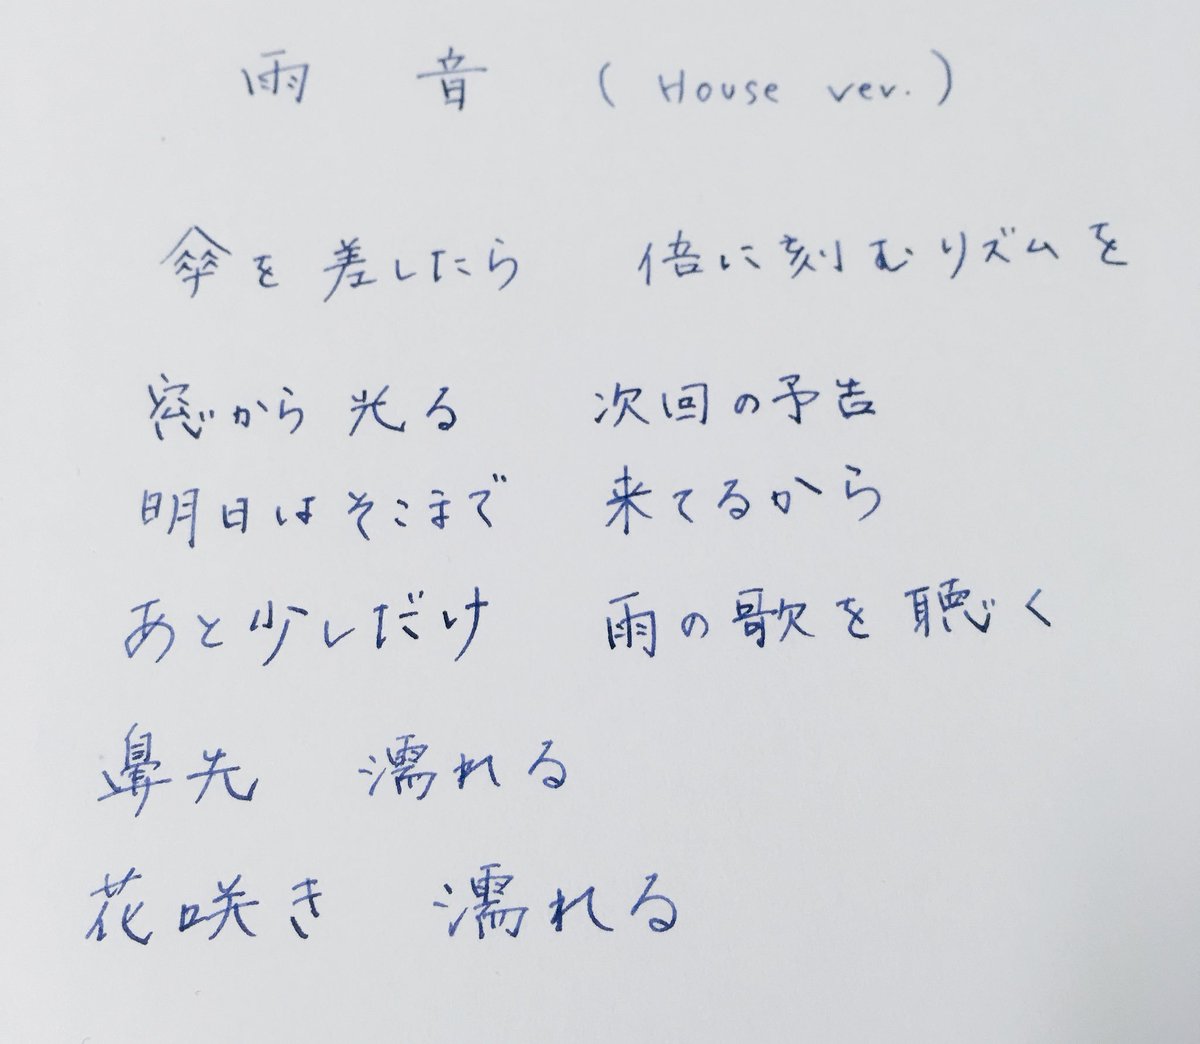 雨音 (House ver.)
傘を差したら 倍に刻むリズムを
窓から光る 次回の予告
明日はそこまで 来てるから
あと少しだけ 雨の歌を聴く
鼻先 濡れる
花咲き 濡れる